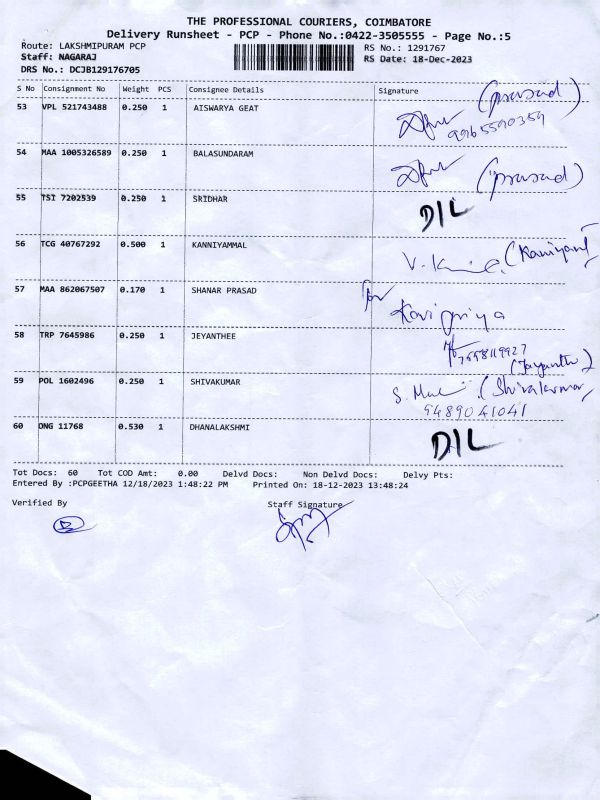 THE PROFESSIONAL COURIERS, COIMBATORE
Delivery Runsheet - PCP - Phone No.:0422-3505555 - Page No.:5
Route: LAKSHMIPURAM PCP
RS No.: 1291767
Staff: NAGARAJ
RS Date: 18-Dec-2023
DRS No.: DCJB129176705
S No Consignment No Weight PCS Consignee Details Signature
53 VPL 521743488 0.250 1 AISWARYA GEAT (prasad)
9965590359
54 MAA 1005326589 0.250 1 BALASUNDARAM (prasad)
55 TSI 7202539 0.250 1 SRIDHAR D/L
56 TCG 40767292 0.500 1 KANNIYAMMAL
57 MAA 862067507 0.170 1 SHANAR PRASAD for
Kavi priya
58 TRP 7645986 0.250 1 JEYANTHEE
(Jayanthi)
59 POL 1602496 0.250 1 SHIVAKUMAR (Shivakumar)
9489041041
60 ONG 11768 0.530 1 DHANALAKSHMI D/L
Tot Docs: 60 Tot COD Amt: 0.00 Delvd Docs: Non Delvd Docs: Delvy Pts:
Entered By :PCPGEETHA 12/18/2023 1:48:22 PM Printed On: 18-12-2023 13:48:24
Verified By Staff Signature